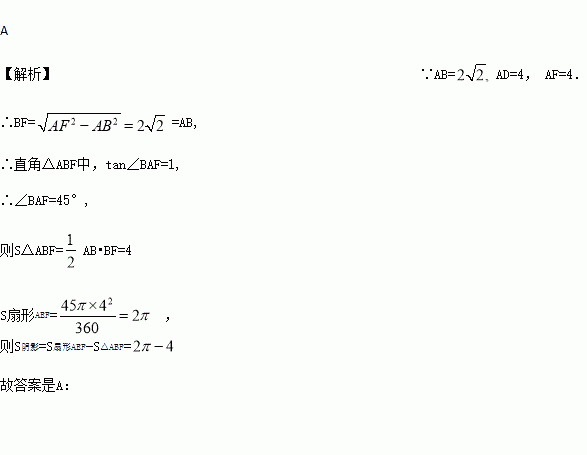 A
【解析】 ∵AB=2√2, AD=4, AF=4.
∴BF=√(AF²−AB²)=2√2 =AB,
∴直角△ABF中,tan∠BAF=1,
∴∠BAF=45°,
则S△ABF=1/2 AB•BF=4
S扇形AEF=45π×4²/360=2π ,
则S阴影=S扇形AEF-S△ABF=2π−4
故答案是A: